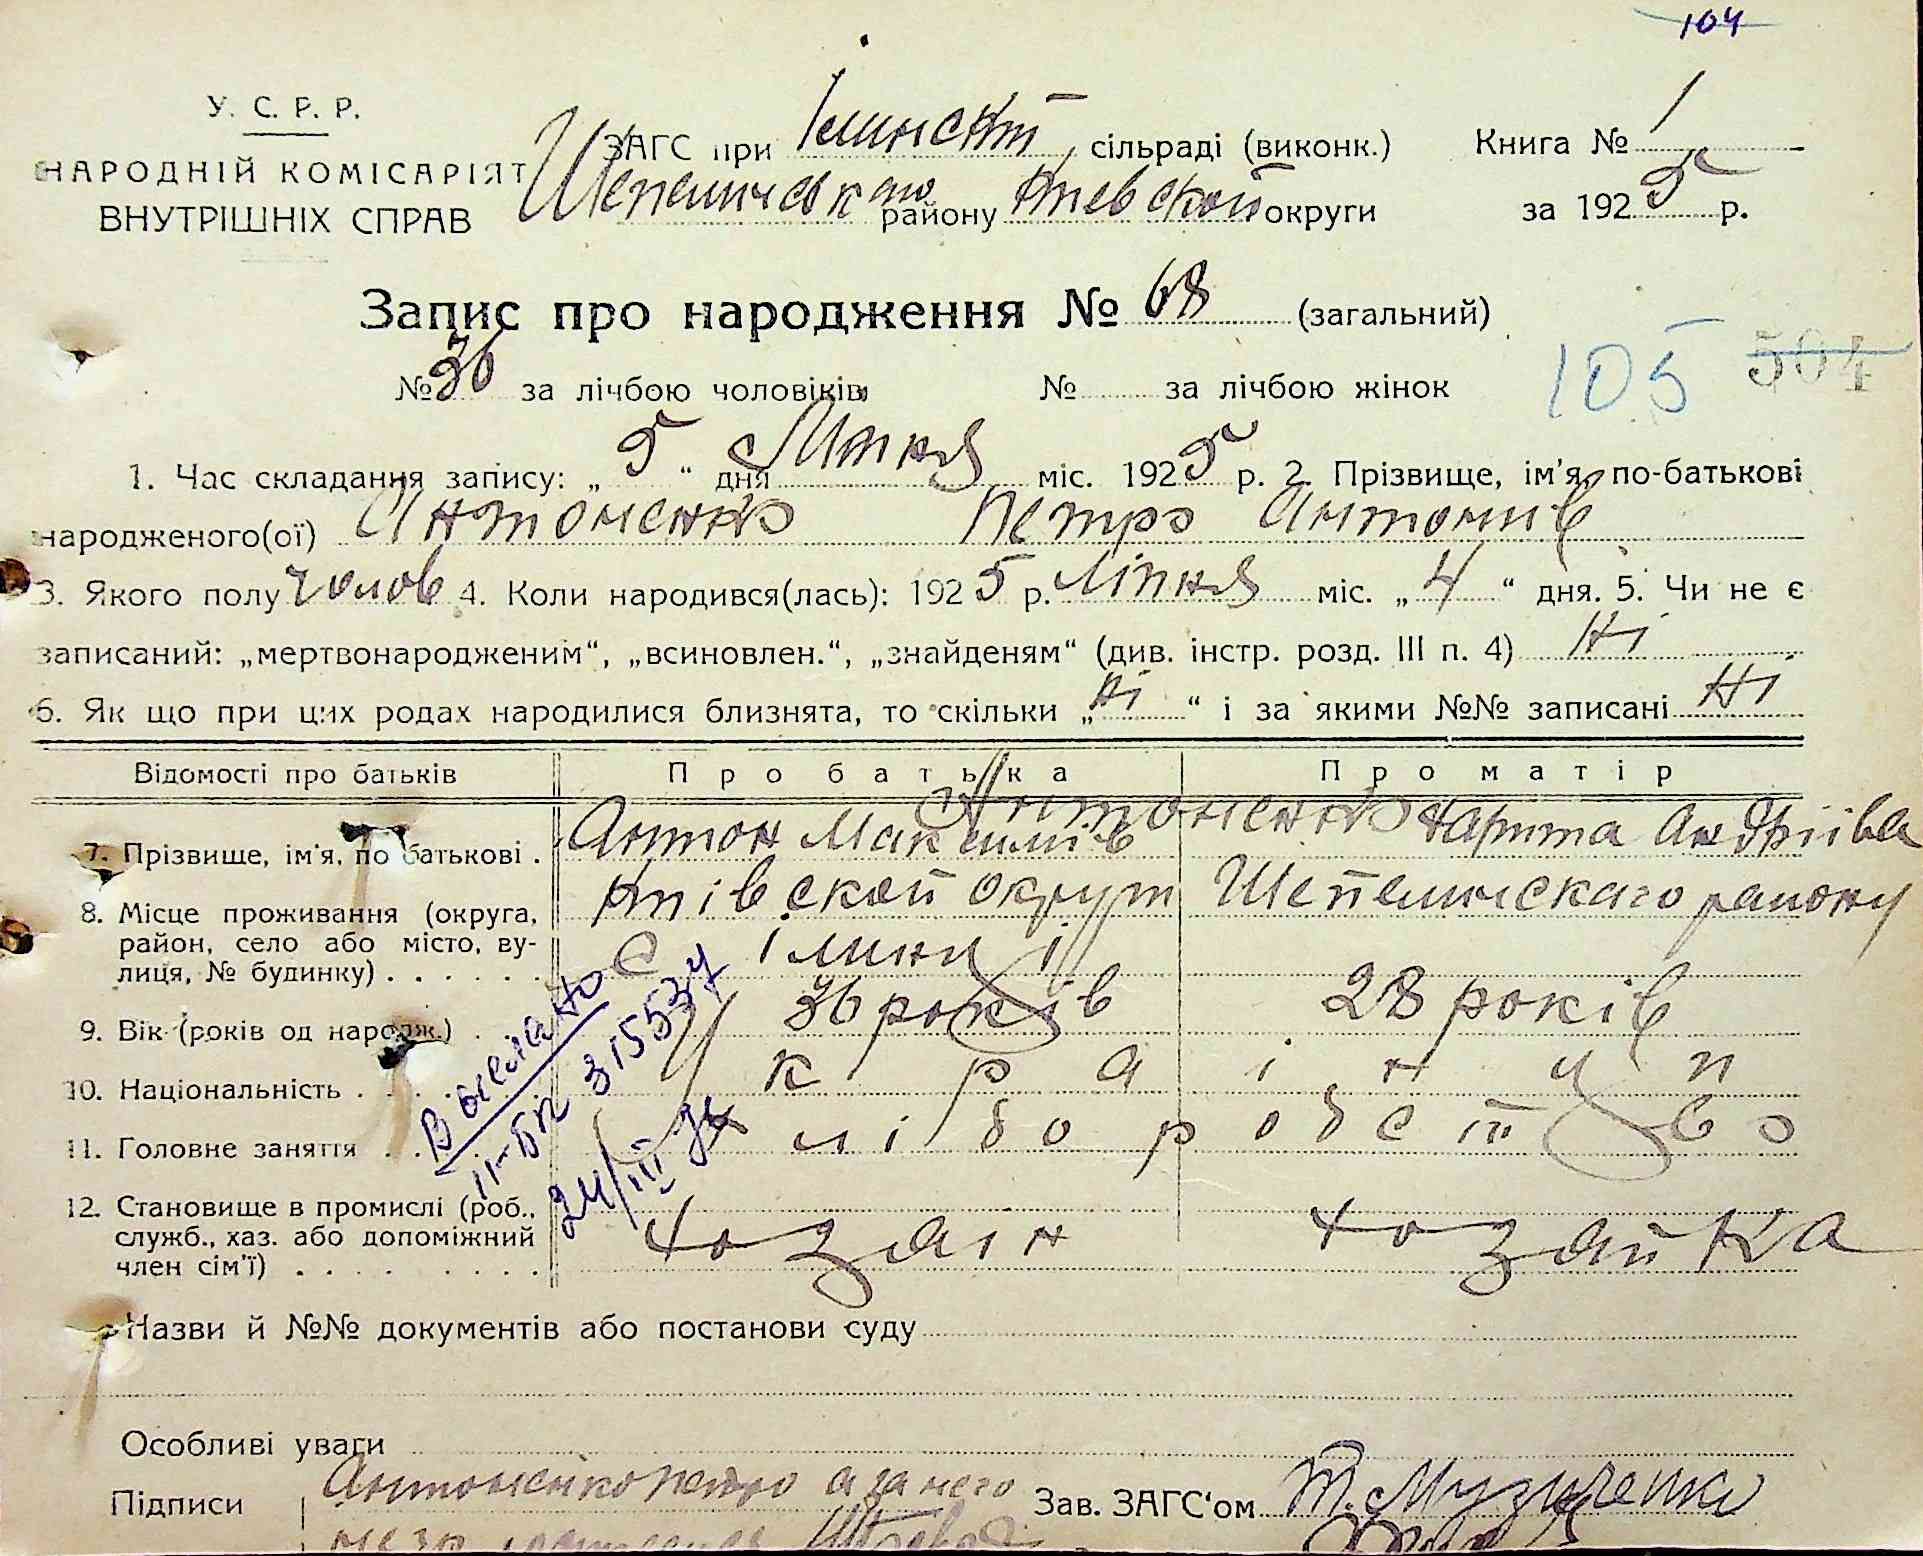 104
У. С. Р. Р.
НАРОДНІЙ КОМІСАРІЯТ
ВНУТРІШНІХ СПРАВ
ЗАГС при Ілинскт сільраді (виконк.)
Шепеличського району Киевской округи
Книга № 1
за 1925 р.
Запис про народження № 68 (загальний)
№ 36 за лічбою чоловіків № за лічбою жінок
105 504
1. Час складання запису: „5“ дня Липня міс. 1925 р. 2. Прізвище, ім'я, по-батькові
народженого(ої) Антоненко Петро Антонів
3. Якого полу чолов 4. Коли народився(лась): 1925 р. Ліпня міс. „4“ дня. 5. Чи не є
записаний: „мертвонародженим“, „всиновлен.“, „знайденям“ (див. інстр. розд. III п. 4) Ні
6. Як що при цих родах народилися близнята, то скільки „Ні“ і за якими №№ записані Ні
Відомості про батьків Про батька Про матір
Антоненко
7. Прізвище, ім'я, по батькові . Антон Максимів Харита Андріівна
8. Місце проживання (округа, Київской округи Шепеличскаго району
район, село або місто, ву- с Ілинці
лиця, № будинку) . . . . . .
9. Вік (років од народж.) . 36 років 28 років
10. Національність . . . . Українци
11. Головне заняття . . . . Хліборобство
12. Становище в промислі (роб., Хозаін Хозайка
служб., хаз. або допоміжний
член сім'ї) . . . . . . . . .
Выслано
II-БК 315537
24/III
Назви й №№ документів або постанови суду
Особливі уваги
Підписи Антоненко а за него
Зав. ЗАГС'ом Т. Музиченко